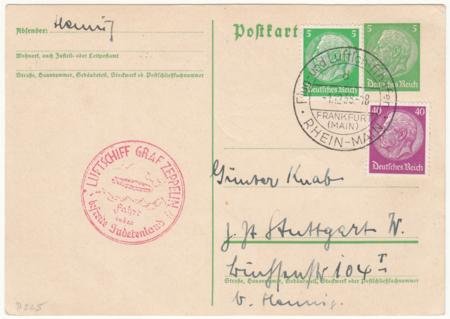 Absender:
Wohnort, auch Zustell- oder Leitpostamt
Straße, Hausnummer, Gebäudeteil, Stockwerk od. Postschließfachnummer
Postkarte
5 5
Deutsches Reich
5 5
40 40
Deutsches Reich
Flug- und Luftschiffhafen
FRANKFURT
(MAIN)
RHEIN-MAIN
LUFTSCHIFF GRAF ZEPPELIN
Fahrt
in das
befreite Sudetenland
Günter Knab
z. Zt. Stuttgart W.
104 I
Straße, Hausnummer, Gebäudeteil, Stockwerk oder Postschließfachnummer
b. Hennig.